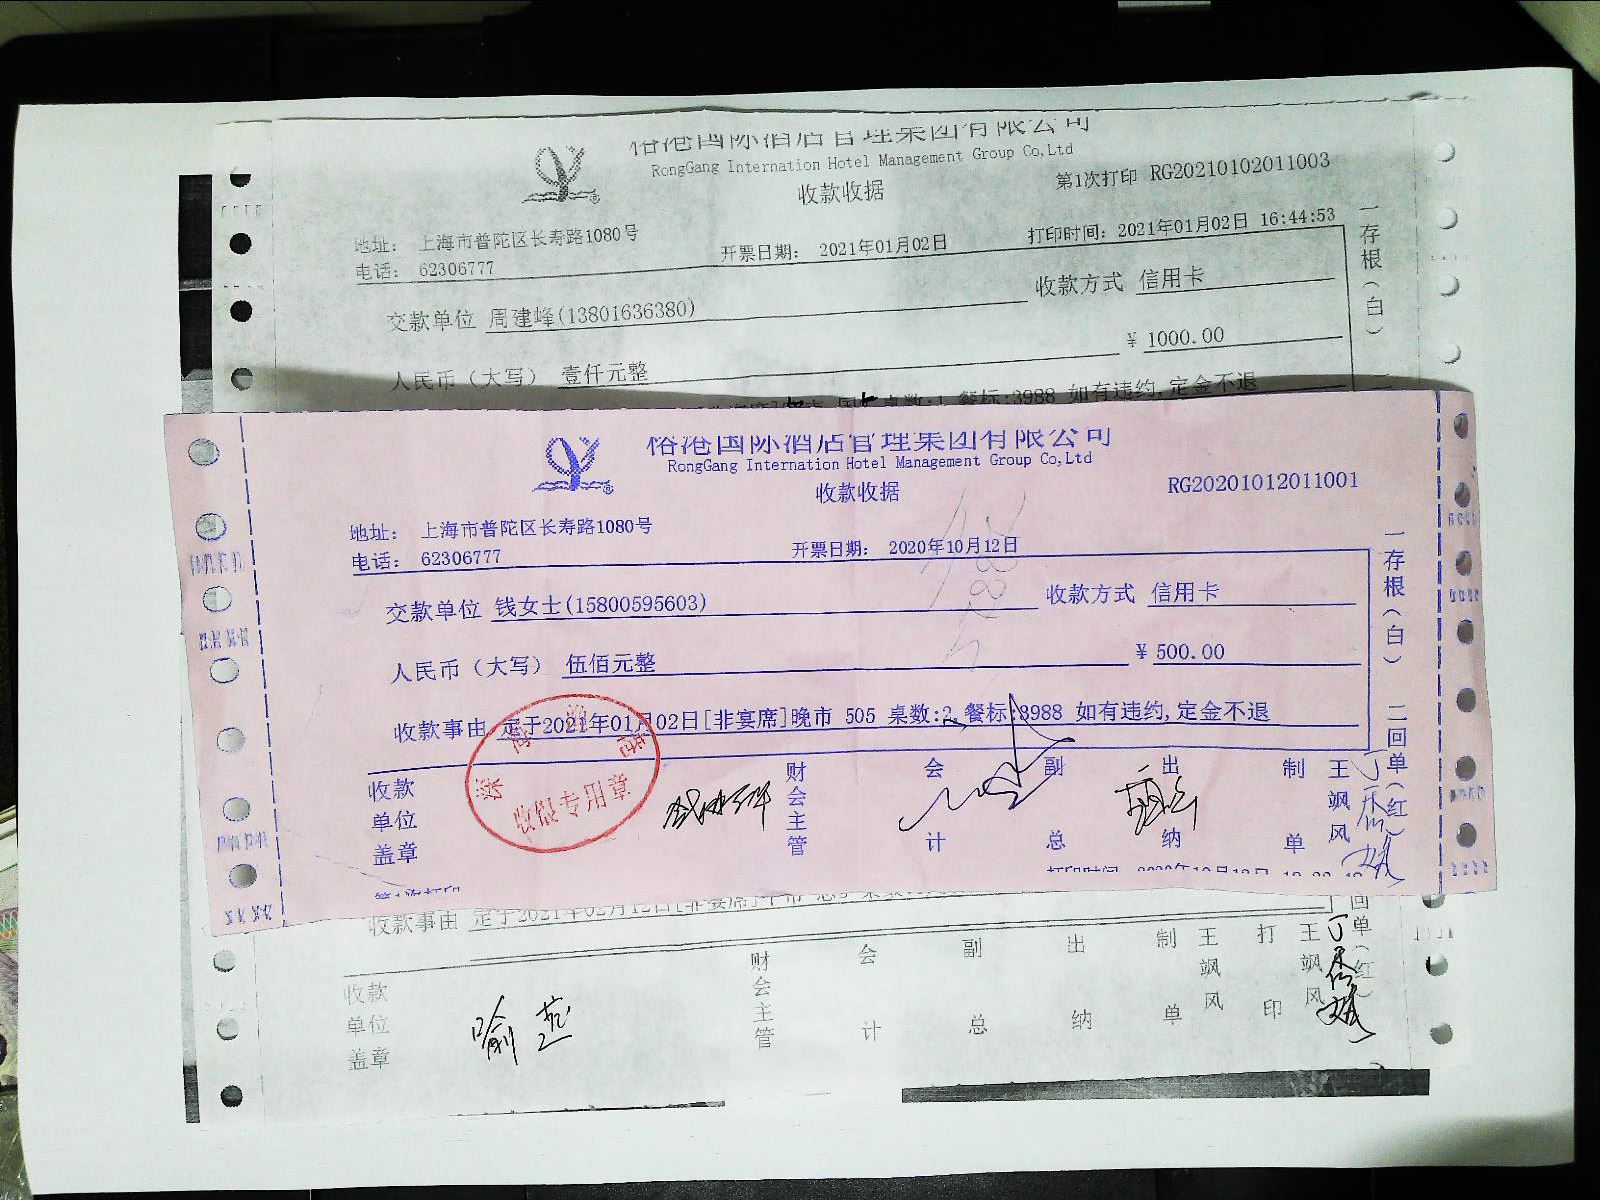 裕港国际酒店管理集团有限公司
RongGang Internation Hotel Management Group Co,Ltd
收款收据
第1次打印 RG20210102011003
地址： 上海市普陀区长寿路1080号
电话： 62306777
开票日期： 2021年01月02日
打印时间：2021年01月02日 16:44:53
交款单位 周建峰(13801636380)
收款方式 信用卡
人民币（大写） 壹仟元整
¥ 1000.00
桌数:1 餐标:3988 如有违约,定金不退
一存根（白）
裕港国际酒店管理集团有限公司
RongGang Internation Hotel Management Group Co,Ltd
收款收据
RG20201012011001
地址： 上海市普陀区长寿路1080号
电话： 62306777
开票日期： 2020年10月12日
交款单位 钱女士(15800595603)
收款方式 信用卡
人民币（大写） 伍佰元整
¥ 500.00
收款事由 定于2021年01月02日[非宴席]晚市 505 桌数:2 餐标:3988 如有违约,定金不退
收款单位盖章
财会主管
会计
副总
出纳
制单
王飒风
一存根（白） 二回单（红）
收银专用章
第1次打印
打印时间
收款事由 定于2021年02月12日[非宴席]
收款单位盖章
喻燕
财会主管
会计
副总
出纳
制单
王飒风
打印
王飒风
回单（红）